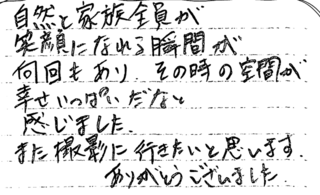 自然と家族全員が
笑顔になれる瞬間が
何回もあり その時の空間が
幸せいっぱいだなと
感じました.
また撮影に行きたいと思います.
ありがとうございました